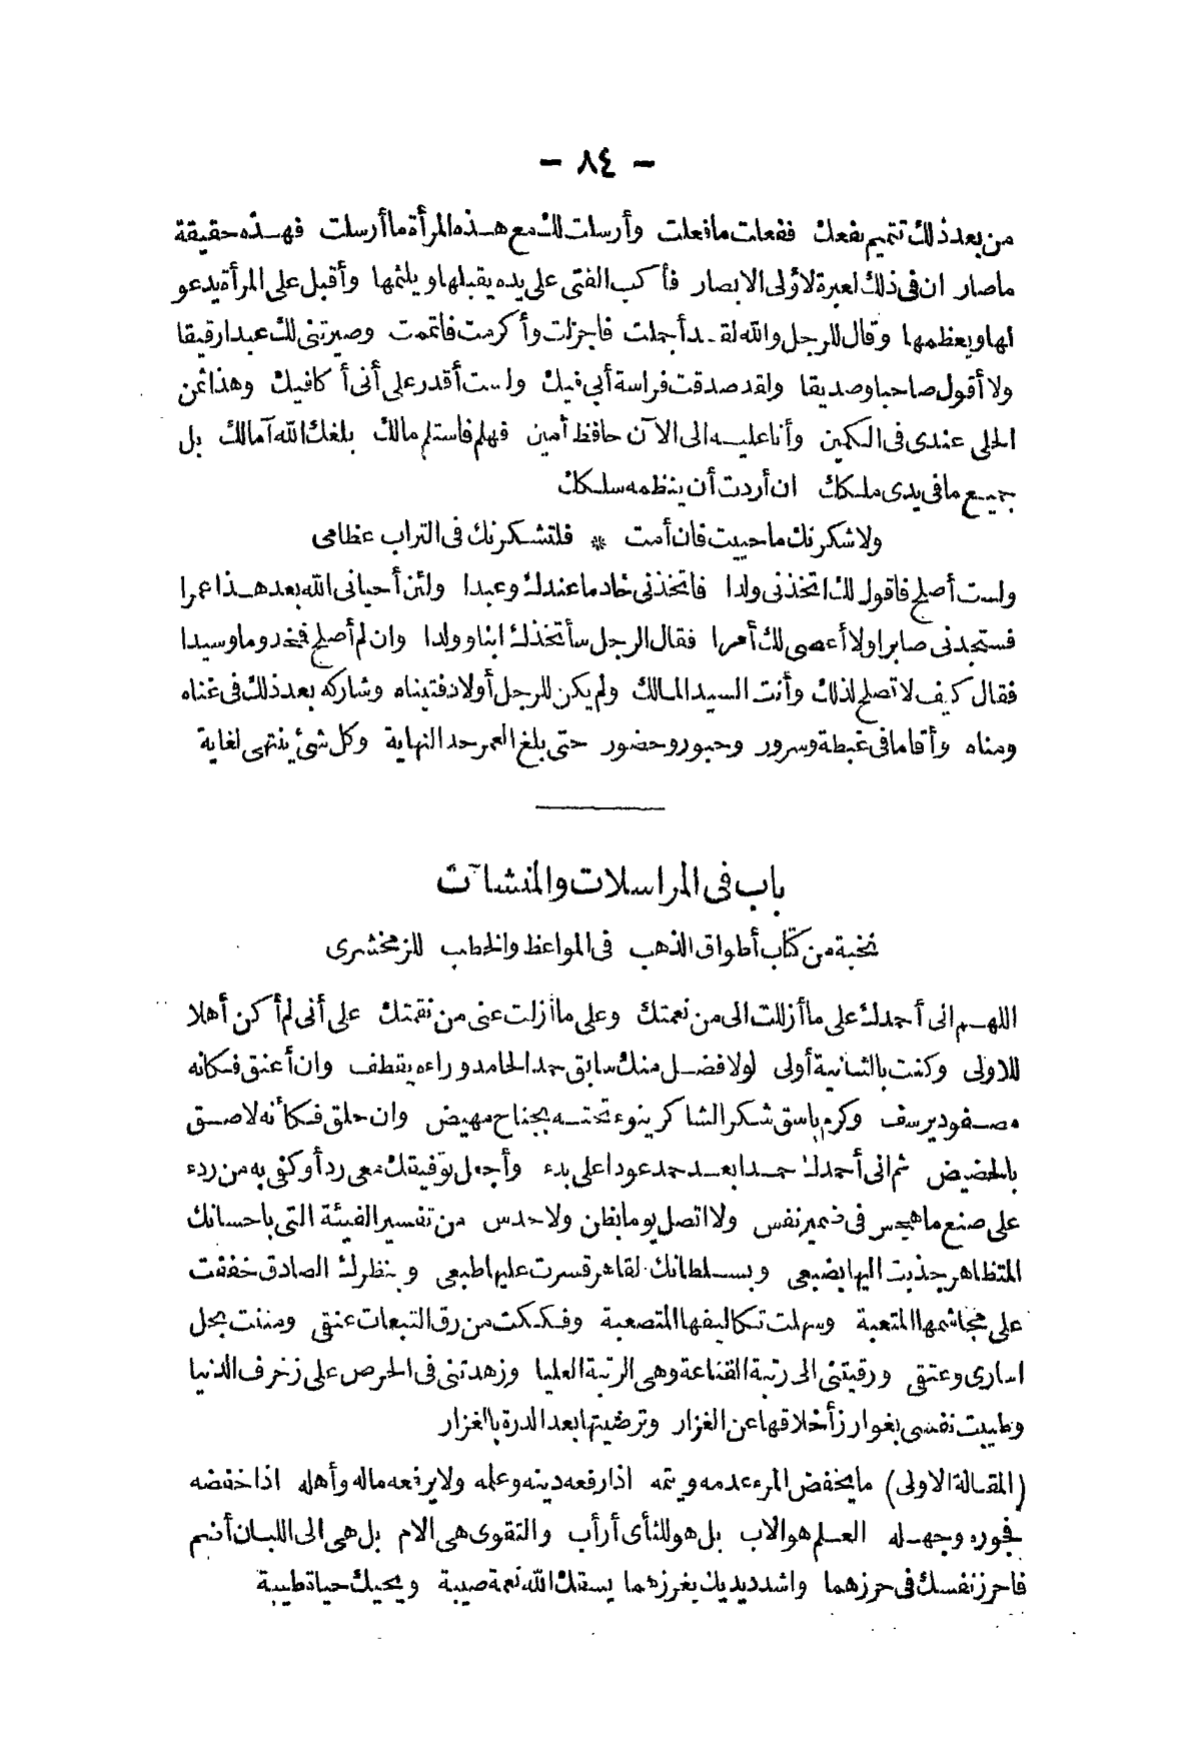 — ٨٤ —
من بعد ذلك تتميم نفعك ففعلت ما فعلت وأرسلت لك مع هذه المرأة ما أرسلت فهذه حقيقة
ما صار ان فى ذلك لعبرة لاولى الابصار فأكب الفتى على يده يقبلها ويلثمها وأقبل على المرأة يدعو
لها ويعظمها وقال للرجل والله لقد أجملت فاجزلت وأكرمت فاتممت وصيرتنى لك عبدا رقيقا
ولا أقول صاحبا وصديقا ولقد صدقت فراسة أبى فيك ولست أقدر على أنى أكافيك وهذا ثمن
الحلى عندى فى الكمين وأنا عليه الى الآن حافظ أمين فهلم فاستلم مالك بلغك الله آمالك بل
جميع ما فى يدى ملكك ان أردت أن ينظمه سلكك
ولاشكرنك ما حييت فان أمت * فلتشكرنك فى التراب عظامى
ولست أصلح فاقول لك اتخذنى ولدا فاتخذنى خادما عندك وعبدا ولئن أحيانى الله بعد هذا عمرا
فستجدنى صابرا ولا أعصى لك أمرا فقال الرجل سأتخذك ابنا وولدا وان لم أصلح فمخدوما وسيدا
فقال كيف لا تصلح لذلك وأنت السيد المالك ولم يكن للرجل أولاد فتبناه وشاركه بعد ذلك فى غناه
ومناه وأقاما فى غبطة وسرور وحبور وحضور حتى بلغ العمر حد النهاية وكل شئ ينتهى لغاية
باب فى المراسلات والمنشآت
نخبة من كتاب أطواق الذهب فى المواعظ والخطب للزمخشرى
اللهم انى أحمدك على ما أزللت الى من نعمتك وعلى ما أزلت عنى من نقمتك على أنى لم أكن أهلا
للاولى وكنت بالثانية أولى لولا فضل منك سابق حمد الحامد وراءه يقطف وان أعنق فكانه
مصفود يرسف وكرم باسق شكر الشاكر ينوء تحته بجناح مهيض وان حلق فكأنه لاصق
بالحضيض ثم انى أحمدك حمدا بعد حمد عودا على بدء وأجعل توفيقك معى ردأ وكفى به من ردء
على صنع ما هجس فى ضمير نفس ولا اتصل يوما بظن ولا حدس من تفسير الفيئة التى باحسانك
المتظاهر جذبت اليها بضبعى وبسلطانك القاهر قسرت عليها طبعى وبنظرك الصادق خففت
على مجاشمها المتعبة وسهلت تكاليفها المتصعبة وفككت من رق التبعات عنقى ومننت بحل
اسارى وعتقى ورقيتنى الى رتبة القناعة وهى الرتبة العليا وزهدتنى فى الحرص على زخرف الدنيا
وطيبت نفسى بغوارز أخلاقها عن الغزار وترضيتها بعد الدرة بالغزار
(المقالة الاولى) ما يخفض المرء عدمه ويتمه اذا رفعه دينه وعلمه ولا يرفعه ماله وأهله اذا خفضه
فجوره وجهله العلم هو الاب بل هو للثأى أرأب والتقوى هى الام بل هى الى اللبان أضم
فاحرز نفسك فى حرزهما واشدد يديك بغرزهما يسقك الله نعمة صيبة ويحيك حياة طيبة